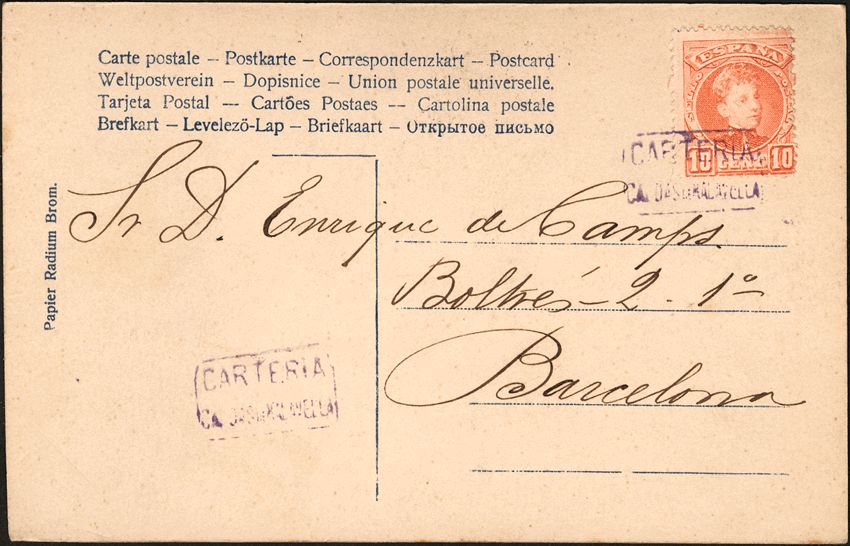 Carte postale – Postkarte – Correspondenzkart – Postcard
Weltpostverein – Dopisnice – Union postale universelle.
Tarjeta Postal — Cartões Postaes -- Cartolina postale
Brefkart – Levelező-Lap – Briefkaart – Открытое письмо
ESPAÑA
10 CENT. 10
CARTERIA
Sr D. Enrique de Camps.
2 - 1º
Barcelona
Papier Radium Brom.
CARTERIA